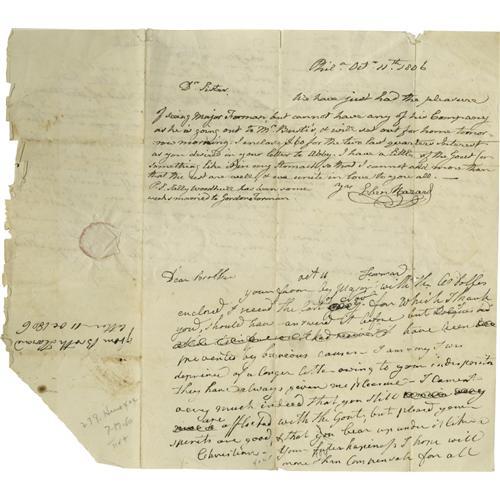 Phila. Octr. 11th. 1806
Dr. Sister,
We have just had the pleasure
of seeing Major Forman, but cannot have any of his Company
as he is going out to Mr. Busti's, & will set out for home tomor
row morning. I enclose $60 for the two last quarters Interest
as you desire in your letter to Abby. I have a little of the Gout or
something like it in my Stomach, so that I cannot add more than
that the rest are well, & we unite in love to you all. —
P.S. Sally Woodhull has been some
weeks married to Gordon Forman
Yrs Eben Hazard
Dear Brother
yours from by Major with the 60 Dollers
enclosed I reced the for which I thank
you, should have answerd it before but
have been
prevented by various causes I am sorry I was
deprived of a longer Letter owing to your indisposition
they have always given me pleasure — I lament
very much indeed that you still
are afflicted with the Gout, but pleased your
spirits are good, & that you bear up under it like a
Christian — Your hapiness I hope will
more than Compensate for all
from Brother Hazard
11 Oct 1806